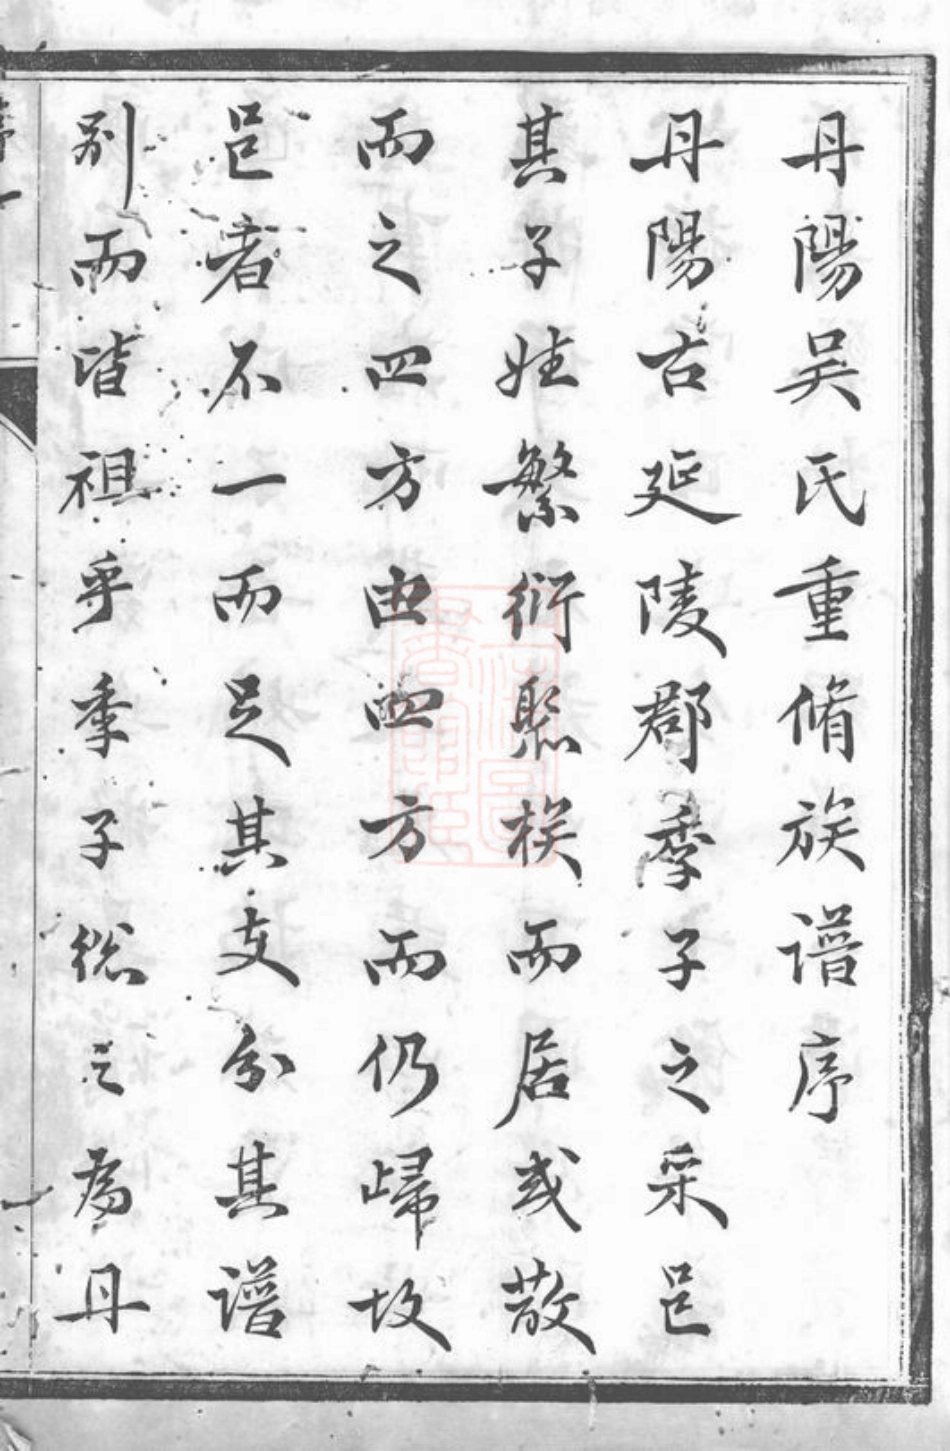 丹陽吴氏重脩族譜序
丹陽古延陵郡季子之采邑
其子姓繁衍聚族而居或散
而之四方由四方而仍歸故
邑者不一而足其支分其譜
别而皆祖乎季子總之為丹